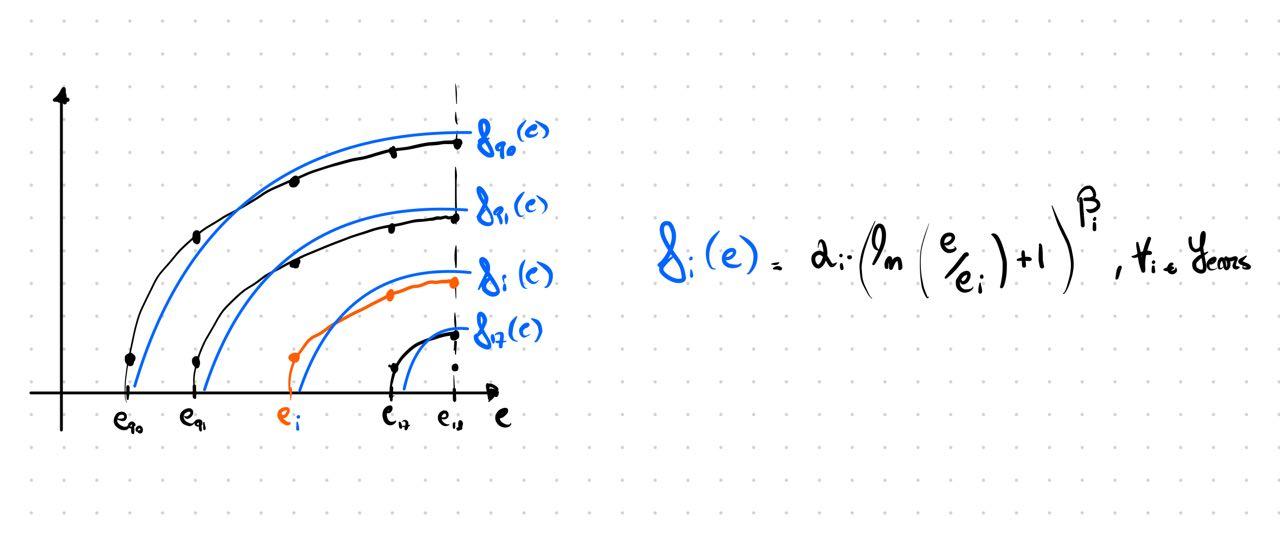 f₉₀(e)
f₉₁(e)
fᵢ(e)
f₁₇(e)
e₉₀ e₉₁ eᵢ e₁₇ e₁₈ e
fᵢ(e) = αᵢ·(ln(e/eᵢ)+1)^βᵢ, ∀i∈Years